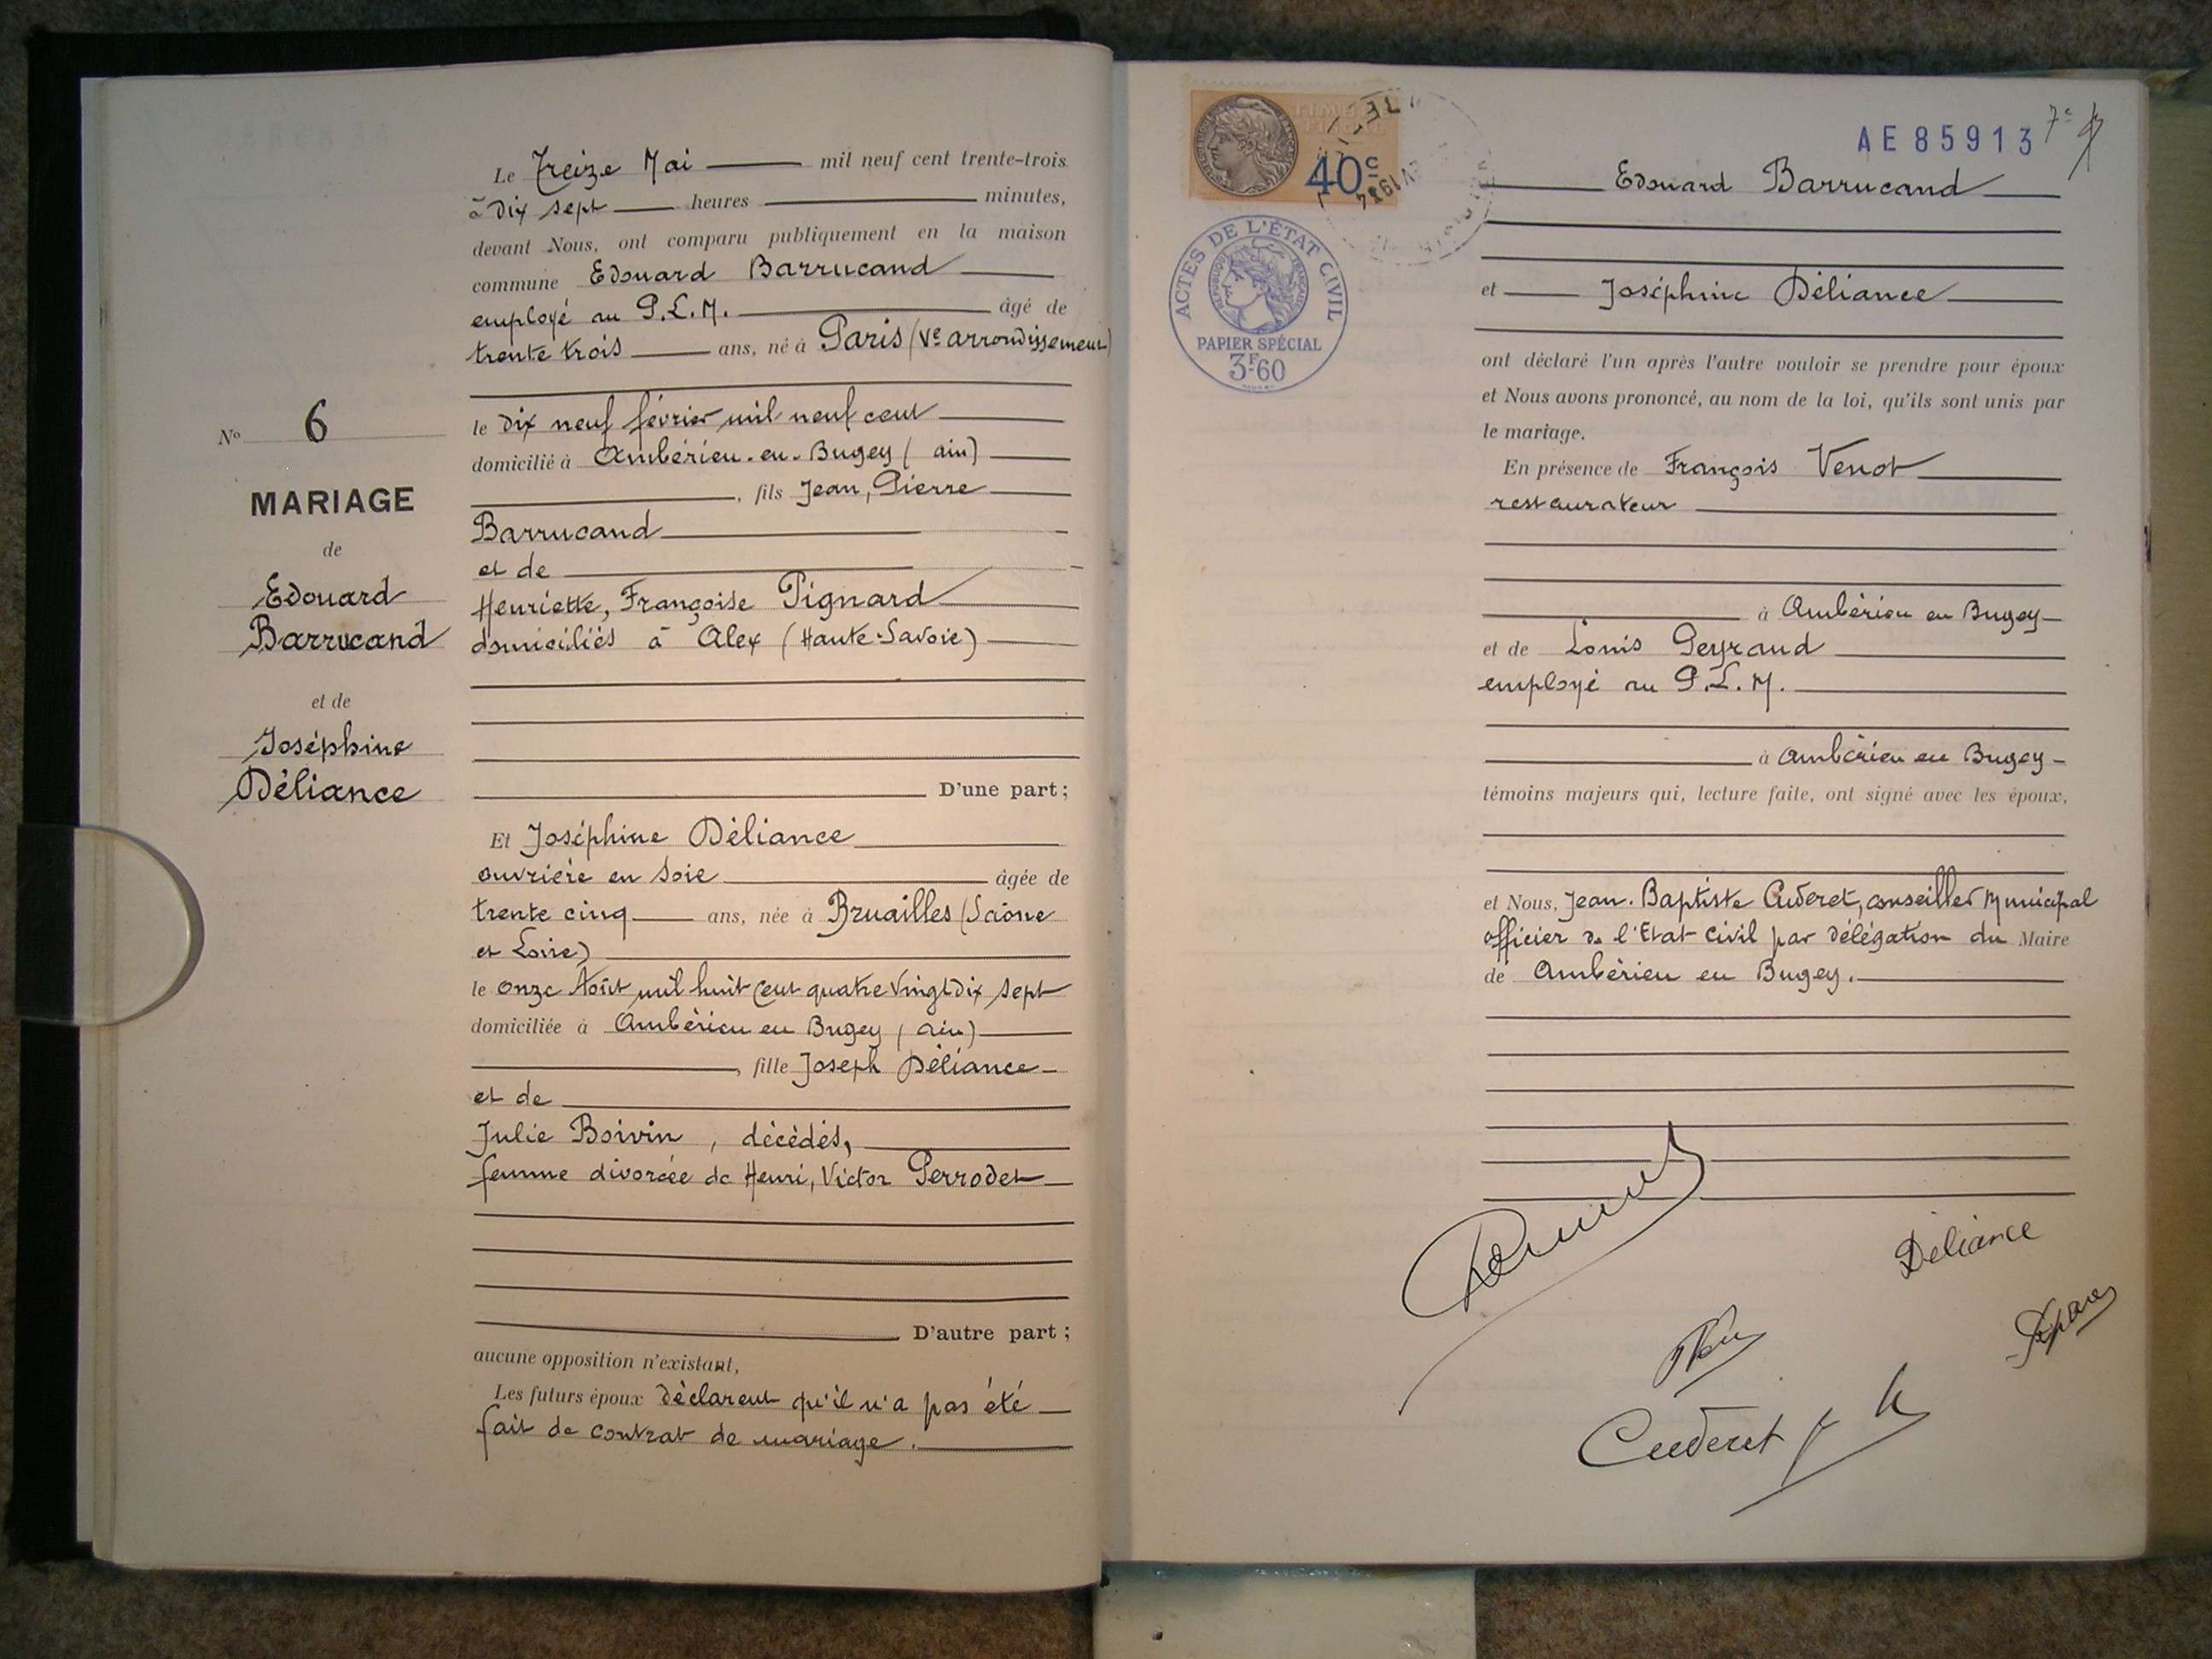 Le Treize Mai mil neuf cent trente-trois
à Dix sept heures minutes,
devant Nous, ont comparu publiquement en la maison
commune Edouard Barrucand
employé au P.L.M. âgé de
trente trois ans, né à Paris (Ve arrondissement)
le Dix neuf février mil neuf cent
domicilié à Ambérieu-en-Bugey (ain)
, fils Jean, Pierre
Barrucand
et de
Henriette, Françoise Pignard
domiciliés à Alex (Haute-Savoie)
D'une part;
No 6
MARIAGE
de
Edouard
Barrucand
et de
Joséphine
Déliance
Et Joséphine Déliance
ouvrière en soie âgée de
trente cinq ans, née à Bruailles (Saône
et Loire)
le onze Août mil huit cent quatre vingt dix sept
domiciliée à Ambérieu en Bugey (ain)
, fille Joseph Déliance
et de
Julie Boivin, décédés,
femme divorcée de Henri, Victor Perrodet
D'autre part;
aucune opposition n'existant,
Les futurs époux déclarent qu'il n'a pas été
fait de contrat de mariage.
TIMBRE
FISCAL
40c
ACTES DE L'ÉTAT CIVIL
RÉPUBLIQUE FRANÇAISE
PAPIER SPÉCIAL
3F60
AE 85913
7e
Edouard Barrucand
et Joséphine Déliance
ont déclaré l'un après l'autre vouloir se prendre pour époux
et Nous avons prononcé, au nom de la loi, qu'ils sont unis par
le mariage.
En présence de François Venot
restaurateur
à Ambérieu en Bugey
et de Louis Peyraud
employé au P.L.M.
à Ambérieu en Bugey
témoins majeurs qui, lecture faite, ont signé avec les époux,
et Nous, Jean-Baptiste Cuderet, conseiller Municipal
officier de l'Etat Civil par délégation du Maire
de Ambérieu en Bugey.
Déliance
Cuderet